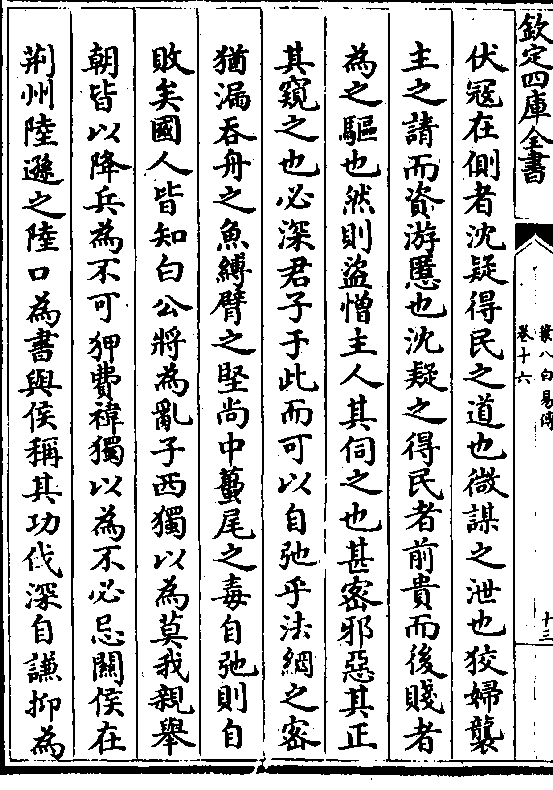 欽定四庫全書
叢八白易傳
卷十六
十三
伏冦在側者沈疑得民之道也微謀之泄也狡婦襲
主之請而資游慝也沈疑之得民者前貴而後賤者
為之驅也然則盜憎主人其伺之也甚密邪惡其正
其窺之也必深君子于此而可以自弛乎法網之密
猶漏吞舟之魚縛臂之堅尚中蠆尾之毒自弛則自
敗矣國人皆知白公將為亂子西獨以為莫我親舉
朝皆以降兵為不可狎費禕獨以為不必忌關侯在
荆州陸遜之陸口為書與侯稱其功伐深自謙抑為